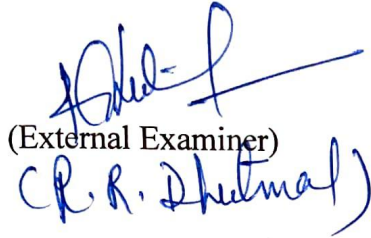 (External Examiner)
(R. R. Dhutmal)